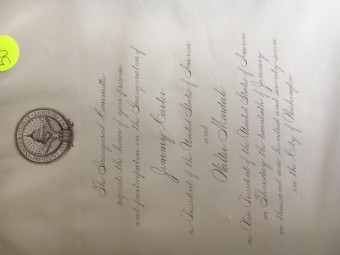 50
The Inaugural Committee
requests the honor of your presence
and participation in the Inauguration of
Jimmy Carter
as President of the United States of America
and
Walter Mondale
as Vice President of the United States of America
on Thursday the twentieth of January
one thousand nine hundred and seventy-seven
in the City of Washington